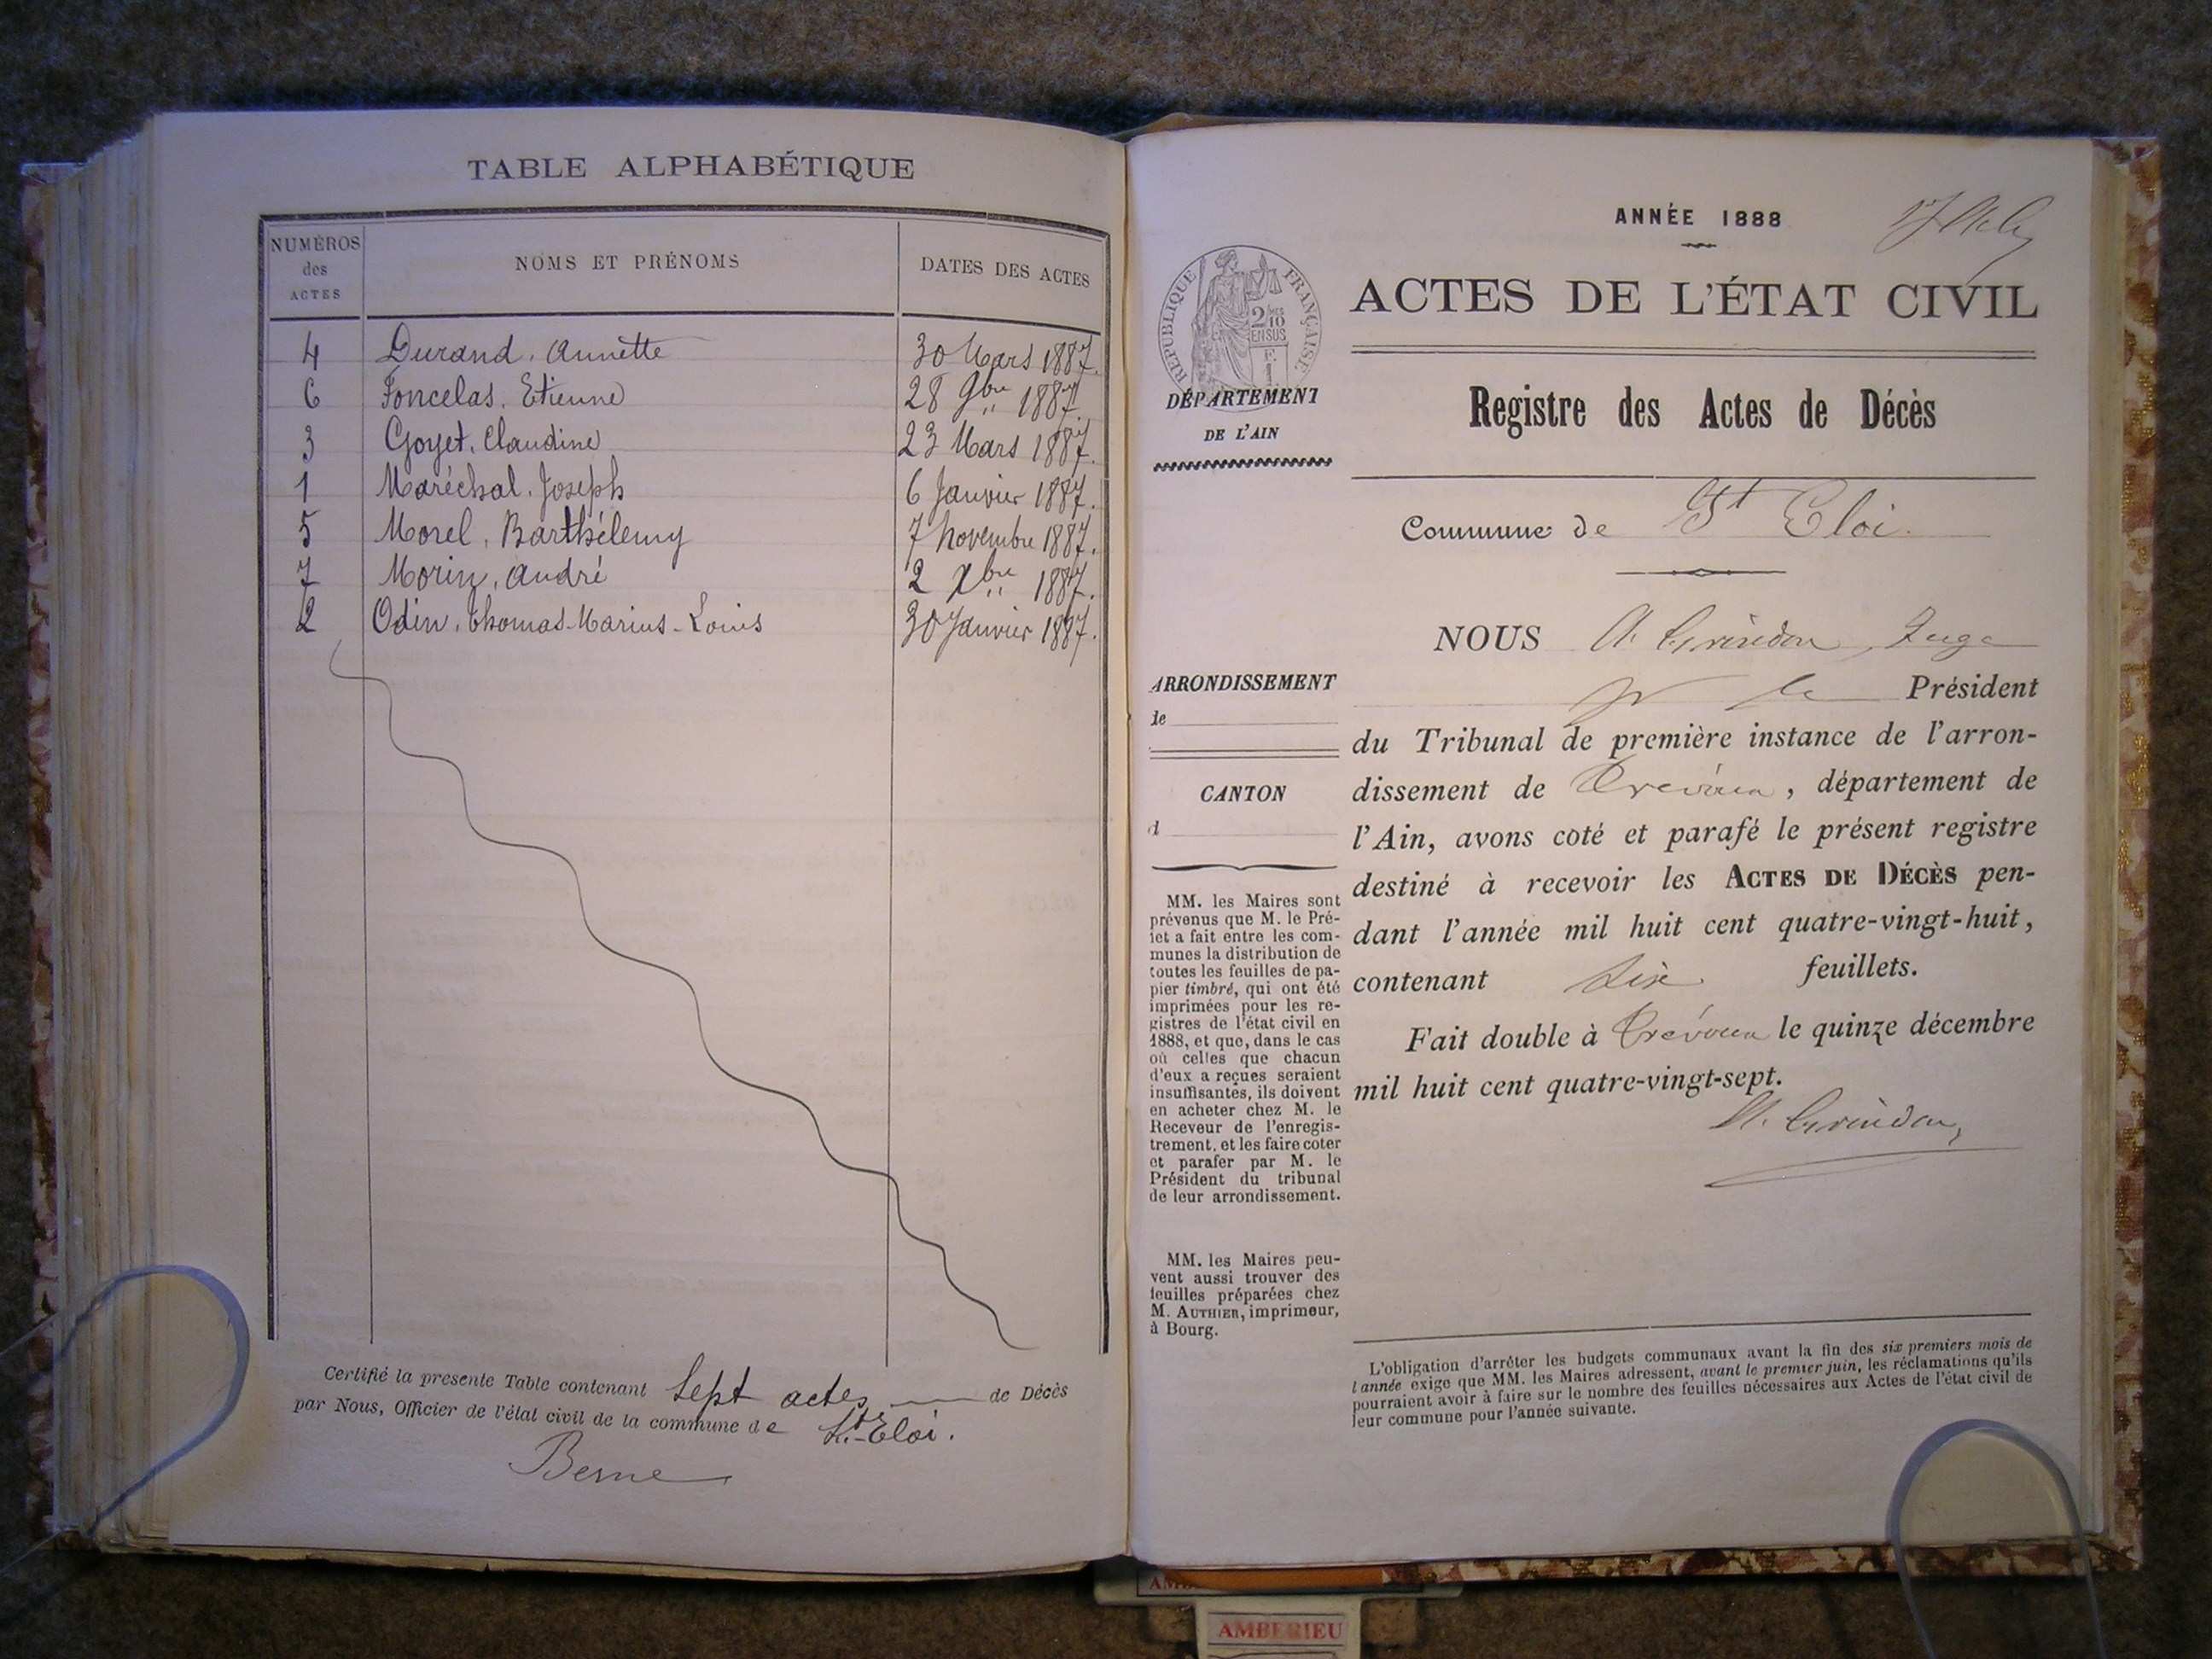 TABLE ALPHABÉTIQUE
NUMÉROS
des
ACTES
NOMS ET PRÉNOMS
DATES DES ACTES
4 Durand. Annette 30 Mars 1887.
6 Foncelas. Etienne 28 9bre 1887.
3 Goyet. Claudine 23 Mars 1887.
1 Maréchal. Joseph 6 Janvier 1887.
5 Morel. Barthélemy 7 Novembre 1887.
7 Morin. André 2 Xbre 1887.
2 Odin. Thomas-Marius-Louis 30 Janvier 1887.
Certifié la présente Table contenant Sept actes de Décès
par Nous, Officier de l'état civil de la commune de St-Eloi.
Berne
ANNÉE 1888
RÉPUBLIQUE FRANÇAISE
2/10
EN SUS
ACTES DE L'ÉTAT CIVIL
DÉPARTEMENT
DE L'AIN
Registre des Actes de Décès
Commune de St Eloi.
NOUS A. Grindon, Juge
Président
ARRONDISSEMENT
de
CANTON
d
du Tribunal de première instance de l'arron-
dissement de Trévoux, département de
l'Ain, avons coté et parafé le présent registre
destiné à recevoir les ACTES DE DÉCÈS pen-
dant l'année mil huit cent quatre-vingt-huit,
contenant six feuillets.
Fait double à Trévoux le quinze décembre
mil huit cent quatre-vingt-sept.
A. Grindon
MM. les Maires sont
prévenus que M. le Pré-
fet a fait entre les com-
munes la distribution de
toutes les feuilles de pa-
pier timbré, qui ont été
imprimées pour les re-
gistres de l'état civil en
1888, et que, dans le cas
où celles que chacun
d'eux a reçues seraient
insuffisantes, ils doivent
en acheter chez M. le
Receveur de l'enregis-
trement, et les faire coter
et parafer par M. le
Président du tribunal
de leur arrondissement.
MM. les Maires peu-
vent aussi trouver des
feuilles préparées chez
M. AUTHIER, imprimeur,
à Bourg.
L'obligation d'arrêter les budgets communaux avant la fin des six premiers mois de
l'année exige que MM. les Maires adressent, avant le premier juin, les réclamations qu'ils
pourraient avoir à faire sur le nombre des feuilles nécessaires aux Actes de l'état civil de
leur commune pour l'année suivante.
AMBERIEU